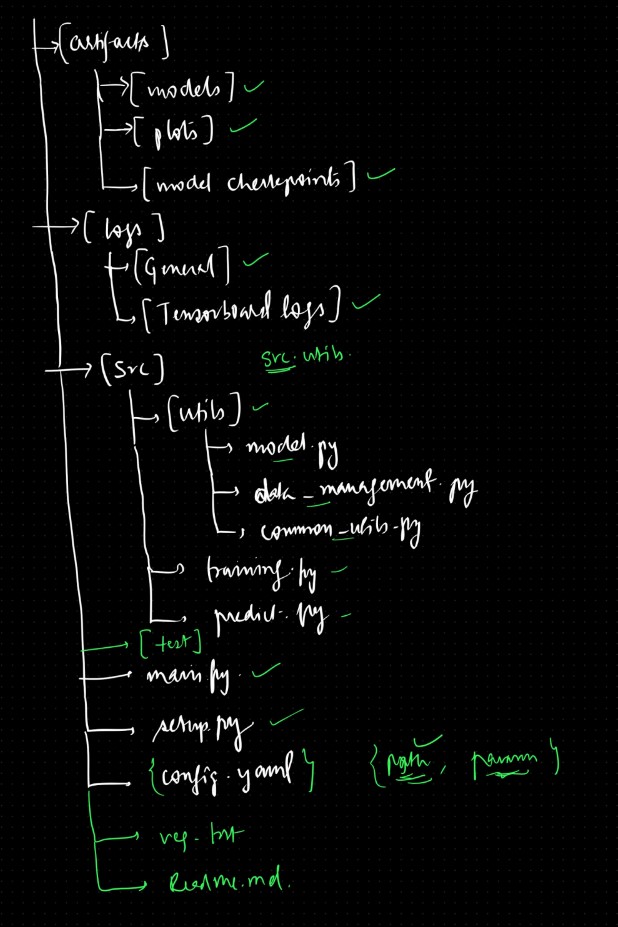 [artifacts]
[models]
[plots]
[model checkpoints]
[logs]
[General]
[Tensorboard logs]
[Src] src.utils.
[utils]
model.py
data_management.py
common_utils.py
training.py
predict.py
[test]
main.py
setup.py
{config.yaml} {path, params}
req.txt
Readme.md.